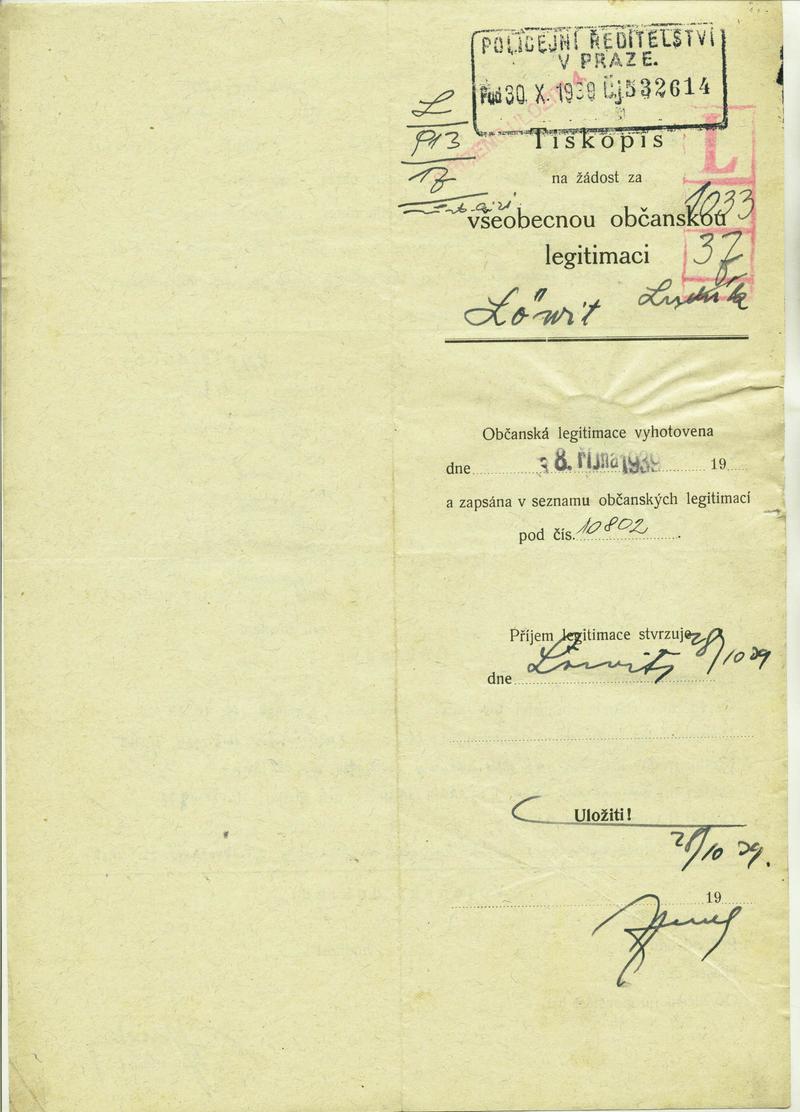 POLICEJNÍ ŘEDITELSTVÍ
V PRAZE.
Pod 30. X. 1939 Čj 532614
L
913
17
Tiskopis
L
na žádost za
1033
všeobecnou občanskou
37
legitimaci
Löwit Ludvík
Občanská legitimace vyhotovena
dne 8. října 1939 19
a zapsána v seznamu občanských legitimací
pod čís. 10802
Příjem legitimace stvrzuje
dne Löwit 28/10 39
Uložiti!
28/10 39.
19